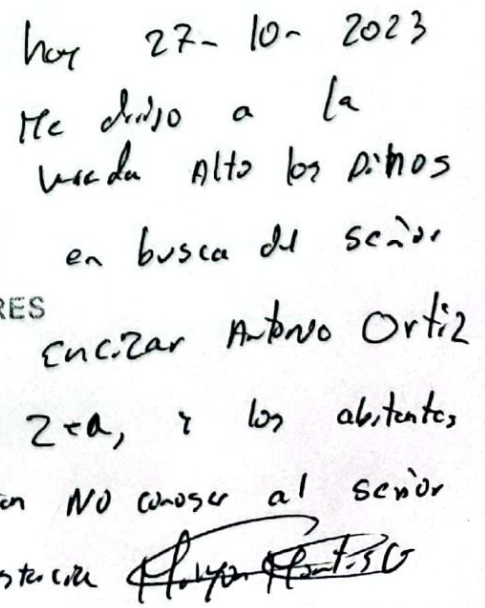 hoy 27- 10- 2023
Me dirijo a la
vereda Alto los pinos
en busca del señor
RES
Encizar Antonio Ortiz
Zea, y los abitantes
an NO conoser al señor